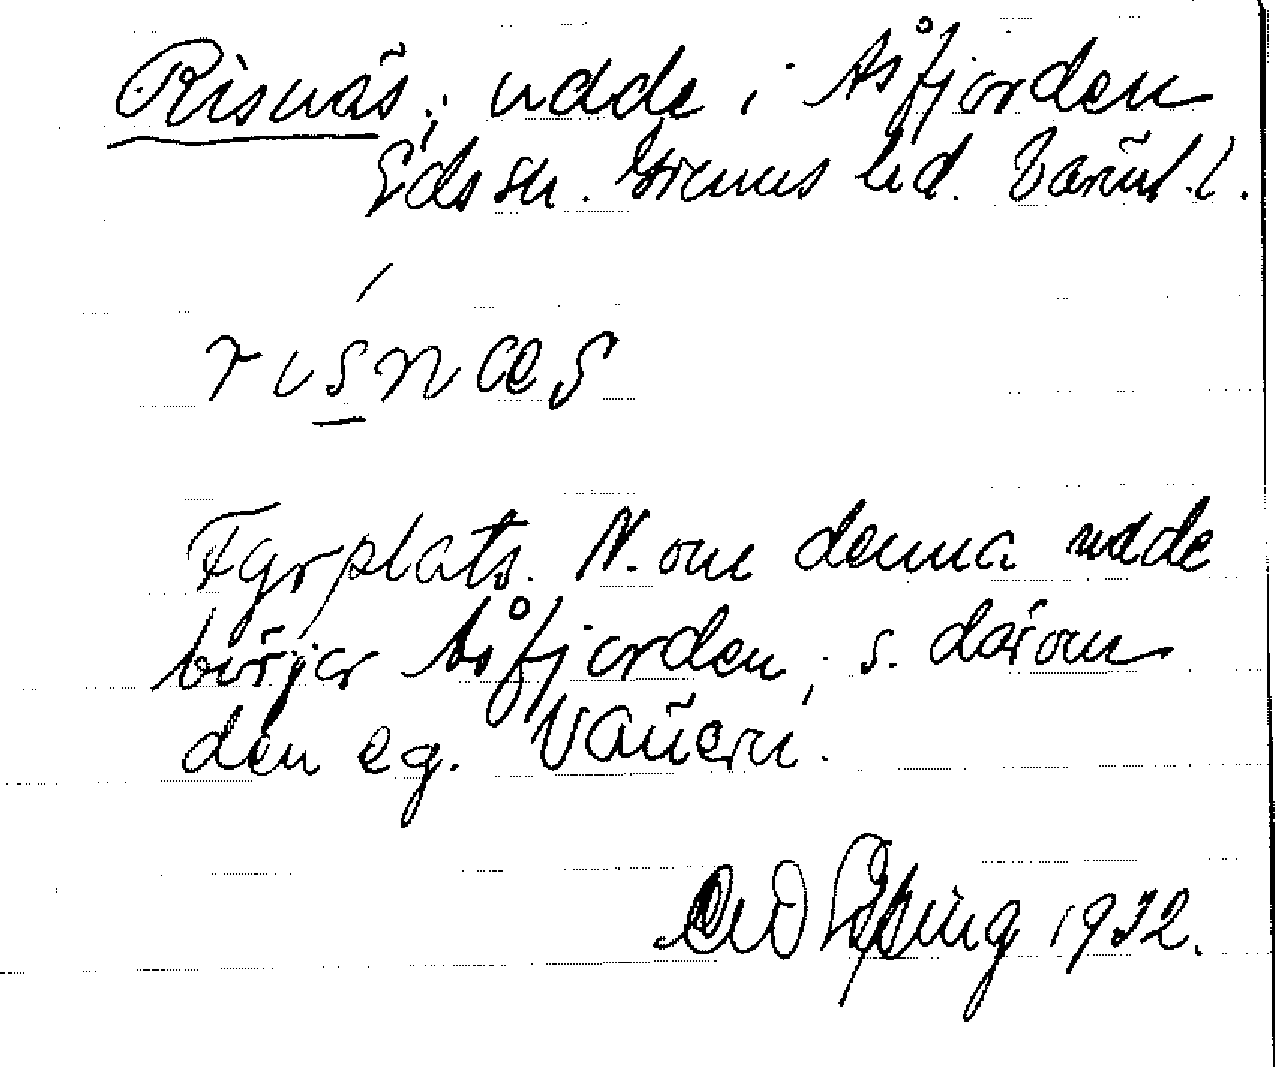 Risnäs, udde i Åsfjorden
Eds sn. Grums hd. Värml. l.
risnæs
Fyrplats. N. om denna udde
börjar Åsfjorden, s. därom
den eg. Vänern.
1932.